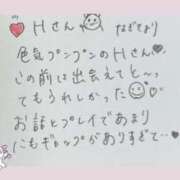 Hさん なぎさより
色気プンプンのHさん
この前は出会えてと〜っ
てもうれしかった
お話とプレイであまり
にもギャップがありすぎて…